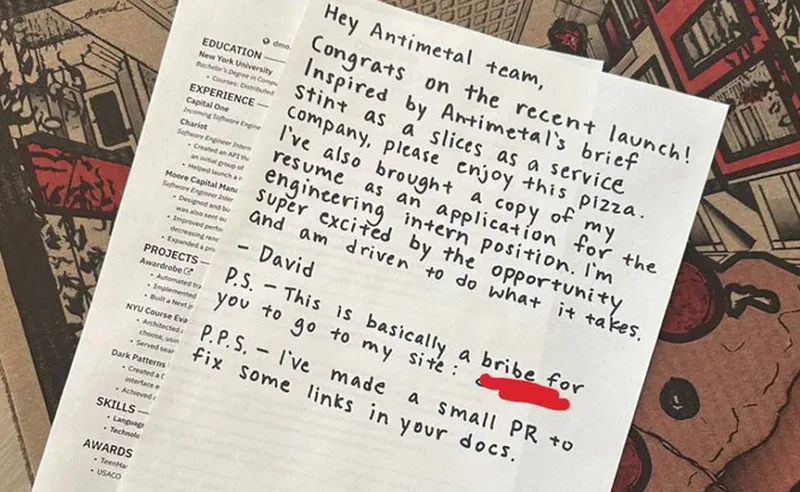 dmo.
EDUCATION
New York University
Bachelor's Degree in Compu
• Courses: Distributed
EXPERIENCE
Capital One
Incoming Software Engine
Chariot
Software Engineer Intern
• Created an API th
an initial group of
• Helped launch a n
Moore Capital Mana
Software Engineer Inter
• Designed and bu
was also sent ou
• Improved perfo
decreasing rend
• Expanded a pro
PROJECTS
Awardrobe
• Automated tra
• Implemented
• Built a Next.js
NYU Course Eva
• Architected a
choose, usin
• Served sear
Dark Patterns
• Created a C
interface e
• Achieved
SKILLS
• Language
• Technolo
AWARDS
• TeenHa
• USACO
Hey Antimetal team,
Congrats on the recent launch!
Inspired by Antimetal's brief
stint as a slices as a service
company, please enjoy this pizza.
I've also brought a copy of my
resume as an application for the
engineering intern position. I'm
super excited by the opportunity
and am driven to do what it takes.
- David
P.S. - This is basically a bribe for
you to go to my site:
P.P.S. - I've made a small PR to
fix some links in your docs.